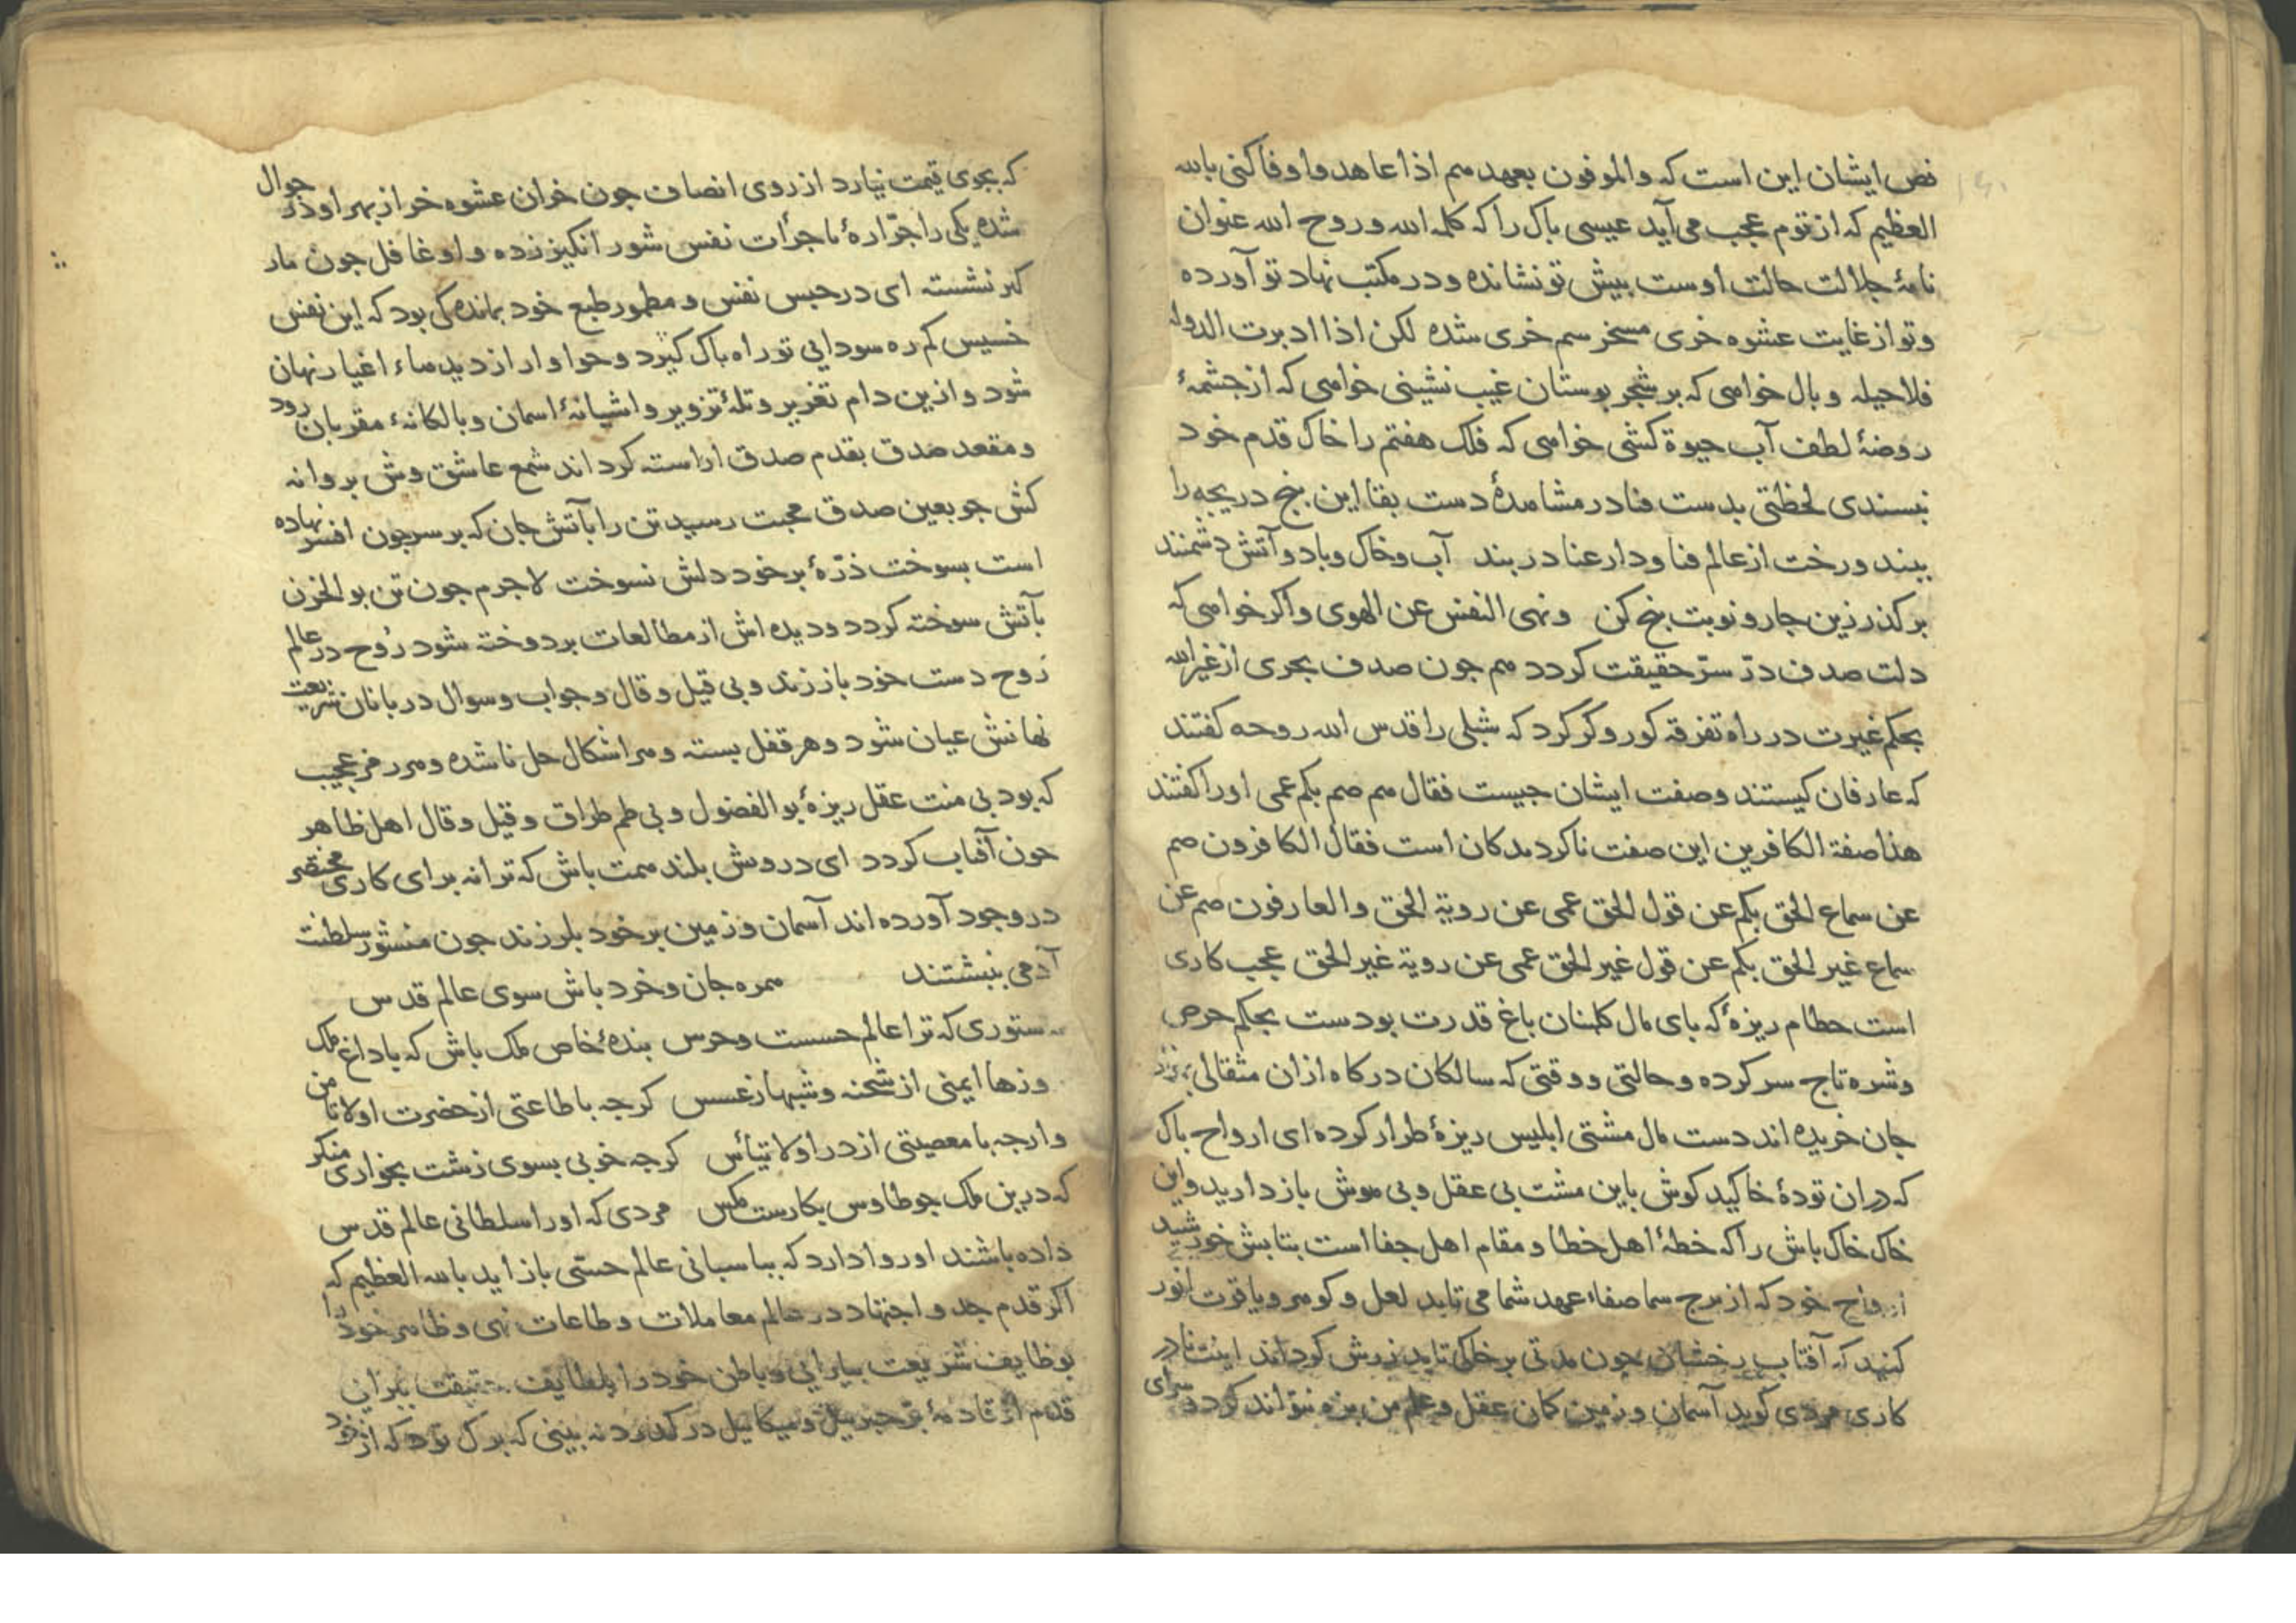 نص ایشان این است که والموفون بعهدهم اذا عاهدوا وفا کنی بالله
العظیم که از توم عجب می آید عیسی باک را که کلمه الله و روح الله عنوان
نامۀ جلالت حالت اوست بیش تو نشانده و در مکتب نهاد تو آورده
و تو از غایت عشوه خری مسخر سم خری شده لکن اذا ادبرت الدوله
فلا حیله و بال خواهی که بر شجر بوستان غیب نشینی خواهی که از جشمۀ
روضۀ لطف آب حیوة کشی خواهی که فلک هفتم را خاک قدم خود
نبسندی لحظتی بدست فنا در مشاهدۀ دست بقا این بنج دریجه را
ببند و رخت از عالم فنا و دار عنا در بند آب و خاک و باد و آتش دشمنند
بر کذر زین جار و نوبت بنج کن ونهی النفس عن الهوی و اکر خواهی که
دلت صدف درّ سرّ حقیقت کردد هم جون صدف بحری از غیر الله
بحکم غیرت در راه تفرقه کور و کر کرد که شبلی را قدس الله روحه کفتند
که عارفان کیستند و صفت ایشان جیست فقال هم صم بکم عمی او را کفتند
هذا صفة الکافرین این صفت ناکرویدکان است فقال الکافرون صم
عن سماع الحق بکم عن قول الحق عمی عن رویة الحق والعارفون صم عن
سماع غیر الحق بکم عن قول غیر الحق عمی عن رویة غیر الحق عجب کاری
است حطام ریزۀ که بای مال کلبنان باغ قدرت بودست بحکم حرص
وشره تاج سر کرده و حالتی و وقتی که سالکان درکاه از ان مثقالی
جان خریده اند دست مال مشتی ابلیس ریزۀ طرار کرده ای ارواح باک
که دران تودۀ خاکید کوش باین مشت بی عقل و بی هوش باز دارید و این
خاک خاک باش را که خطۀ اهل خطا و مقام اهل جفا است بتابش خورشید
ارواح خود که از برج سما صفاء عهد شما می تابد لعل و کوهر و یاقوت انور
کنید که آفتاب رخشان جون مدتی بر خاکی تابد زرش کرداند اینت نادر
کاری مردی کوید آسمان و زمین کمان عقل و علم من بزه نتواند کرد و سرای
که بجوی قیمت نیارد از روی انصاف جون خران عشوه خر از بهر او در جوال
شده یکی را جرّارۀ ما جرأت نفس شور انکیز زده و او غافل جون مار
کر نشسته ای در حبس نفس و مطمور طبع خود بمانده کی بود که این نفس
خسیس کم ره سودایی تو راه باک کیرد و حوا وار از دیدهاء اغیار نهان
شود و ازین دام تغریر و تلۀ تزویر و اشیانۀ اسمان و بالکانۀ مقربان رود
و مقعد صدق بقدم صدق اراسته کرداند شمع عاشق وش بروانه
کش جو بعین صدق محبت رسید تن را بآتش جان که بر سر جون افسر نهاده
است بسوخت ذرّۀ بر خود دلش نسوخت لاجرم جون تن بو الحزن
بآتش سوخته کردد و دیده اش از مطالعات بردوخته شود روح در عالم
روح دست خود باز زند و بی قیل و قال و جواب و سوال دربانان شریعت
نهانش عیان شود و هر قفل بسته و هر اشکال حل ناشده و هر رمز عجیب
که بود بی منت عقل ریزۀ بو الفضول و بی طم طراق و قیل و قال اهل ظاهر
جون آفتاب کردد ای درویش بلند همت باش که ترا نه برای کاری مختصر
در وجود آورده اند آسمان و زمین بر خود بلرزند جون منشور سلطنت
آدمی بنبشتند همره جان و خرد باش سوی عالم قدس
نه ستوری که ترا عالم حسست و حرس بندۀ خاص ملک باش که با داغ ملک
روزها ایمنی از شحنه و شبها ز عسس کرجه با طاعتی از حضرت او لا تامن
وارجه با معصیتی از در او لا تیأس کرجه خوبی بسوی زشت بخواری منکر
که درین ملک جو طاوس بکارست مکس مردی که او را سلطانی عالم قدس
داده باشند او روا دارد که بباسبانی عالم حسّی باز اید بالله العظیم که
اکر قدم جد و اجتهاد در عالم معاملات و طاعات نهی و ظاهر خود را
بوظایف شریعت بیارایی و باطن خود را بلطایف حقیقت
قدم از جبریل و میکاییل در کذرد نه بینی که برک تود که از خود